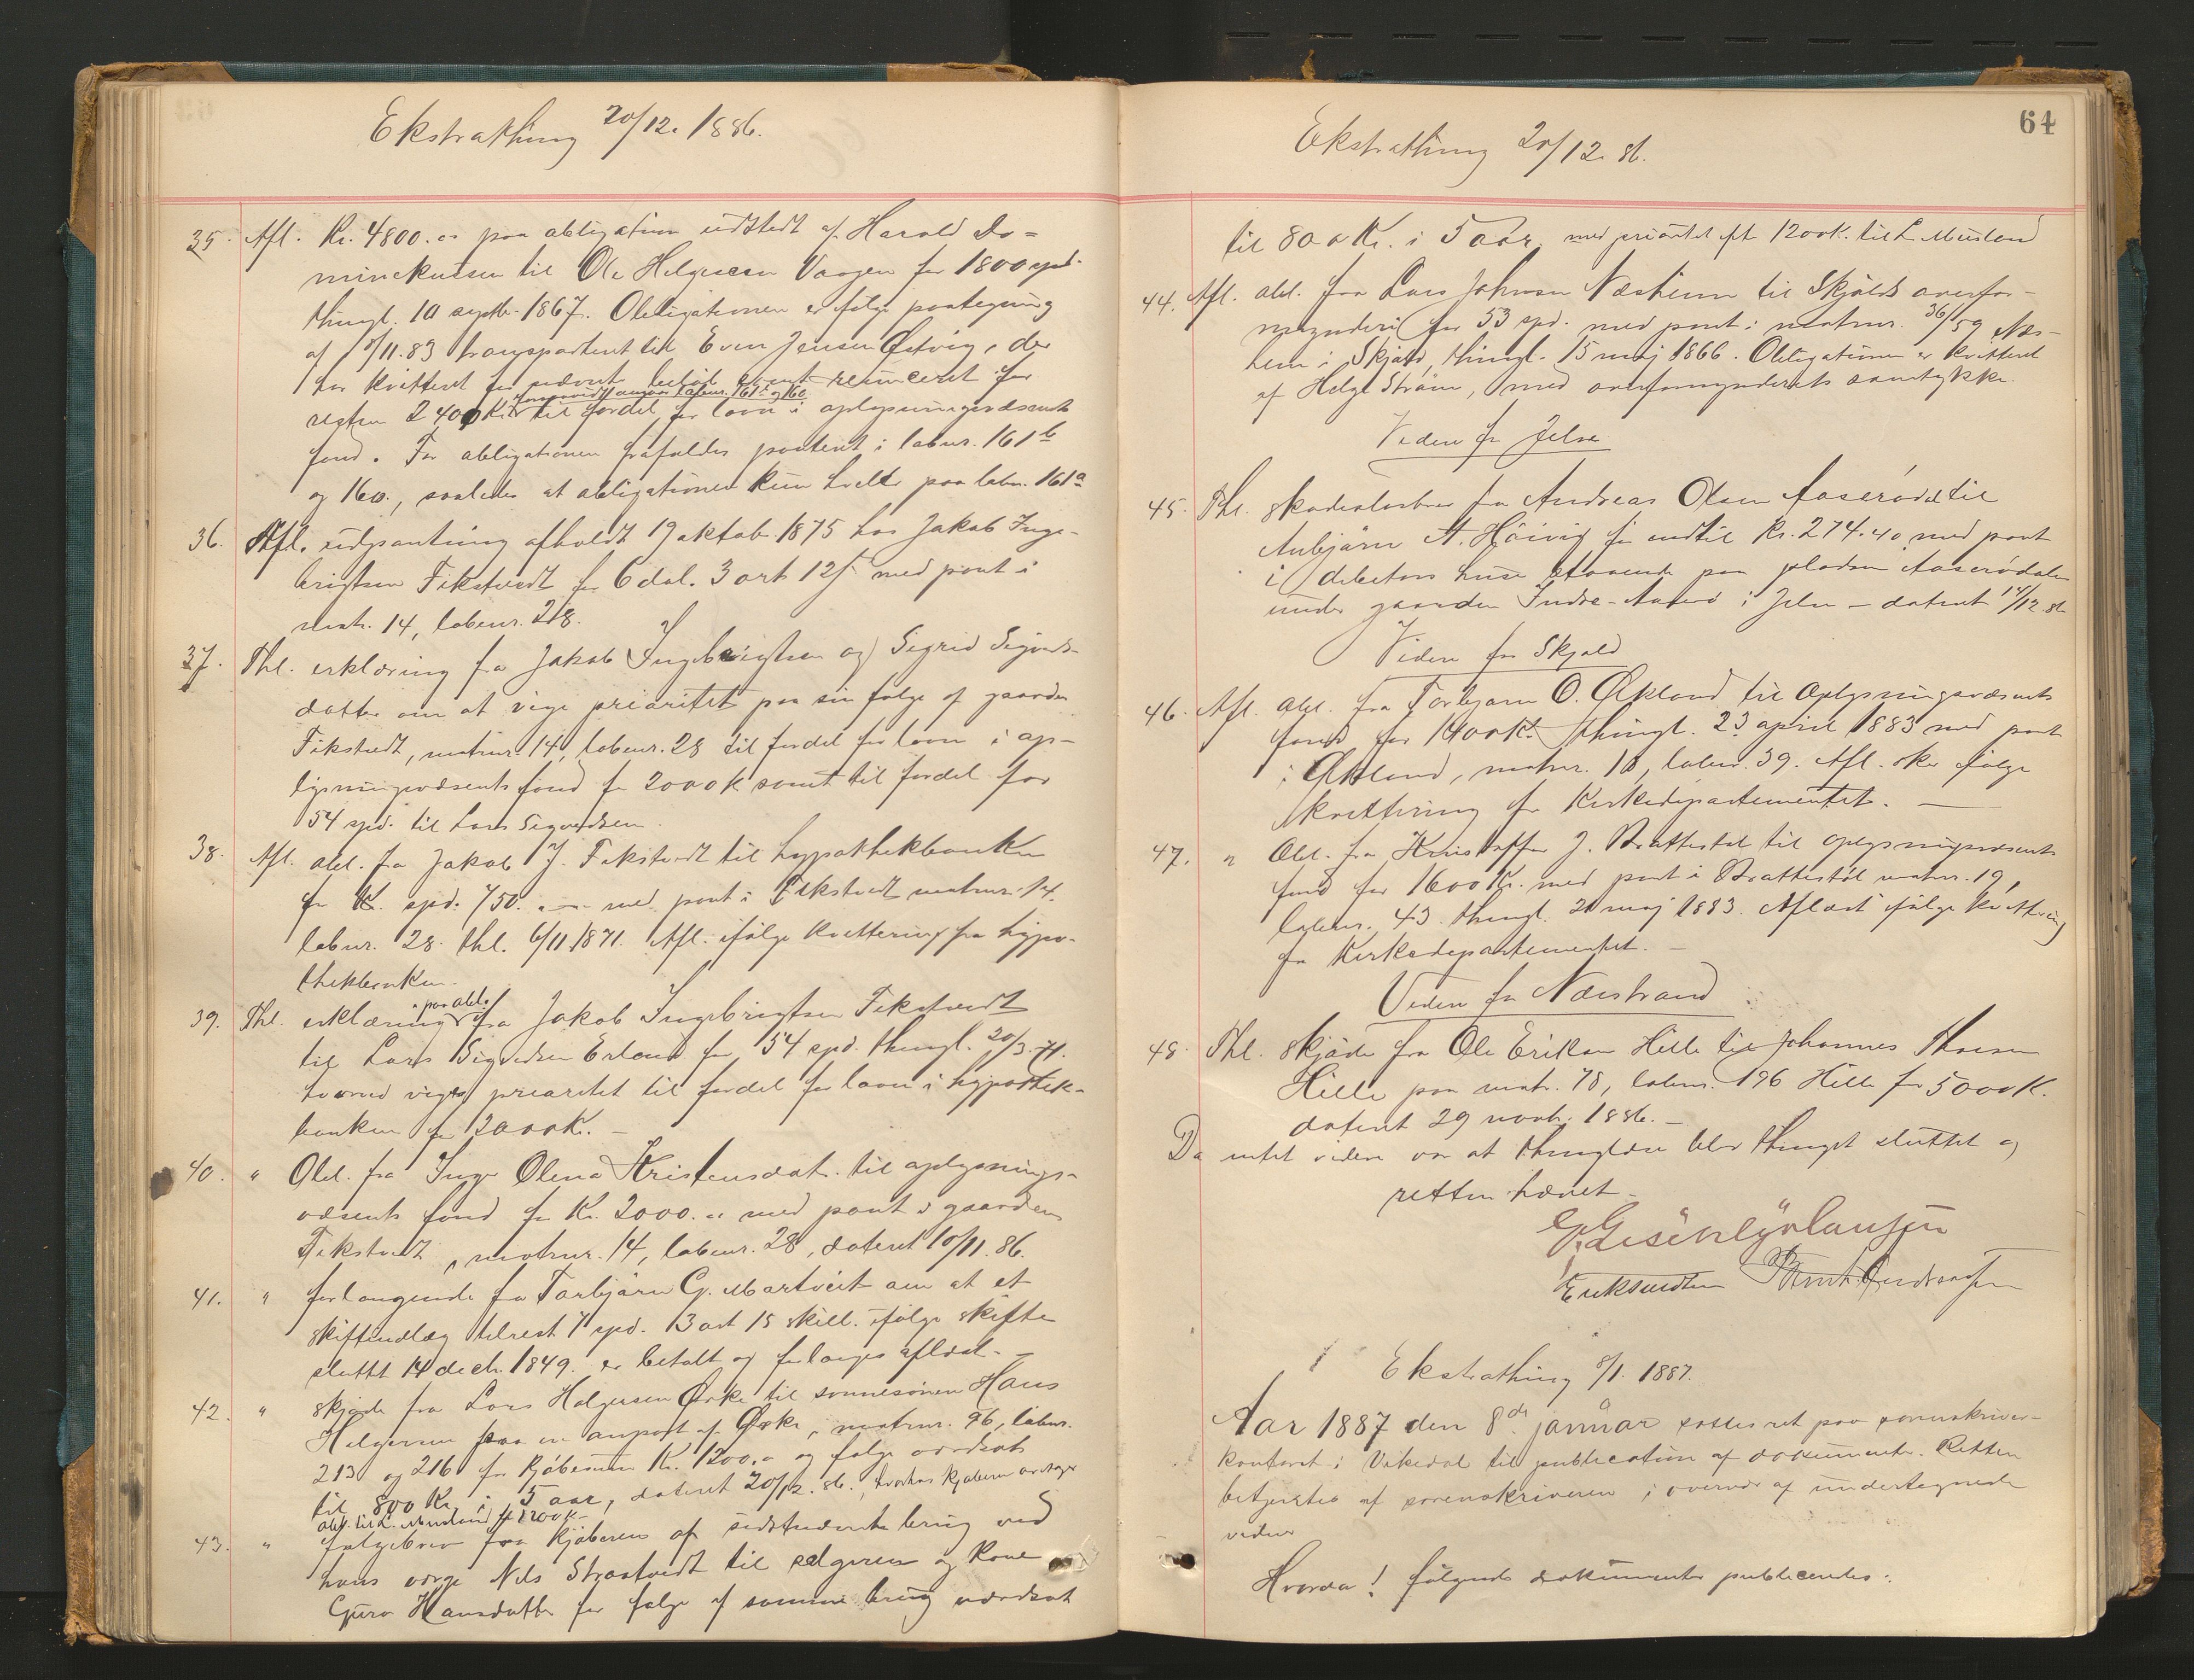 Ekstrathing 20/12. 1886.
35. Afl. Kr. 4800.00 paa obligation udstedt af Harald Do=
minekussen til Ole Helgesen Vaagen for 1800 spd.
thingl. 10 septb. 1867. Obligationen er ifølge paategning
af /11.83 transporteret til Even Jensen Østvig, der
har kvitteret for nævnte beløb samt renunceret for
forsaavidt angaar labnr. 161b og 160
resten 2400 Kr. til fordel for laan i oplysningsvæsenets
fond. For obligationen frafaldes panteret i labnr. 161b
og 160., saaledes at obligationen kun hviler paa labnr. 161a
36. Afl. udpantning afholdt 19 oktob. 1875 hos Jakob Inge-
brigtsen Fikstvedt for 6 dal. 3 ort 12 s med pant i
matr. 14, labenr. 28.
37. Thl. erklæring fra Jakob Ingebrigtsen og Sigrid Sjurds-
datter om at vige prioritet paa sin folge af gaarden
Fikstvedt, matrnr. 14, labenr. 28 til fordel for laan i op-
lysningsvæsenets fond for 2000 K samt til fordel for
54 spd. til Lars Sigvedsen
38. Afl. obl. fra Jakob J. Fikstvedt til hypothekbanken
for spd. 750. - med pant i Fikstvedt matrnr. 14.
labnr. 28. thl. 6/11.1871. Afl. ifølge kvittering fra hypo-
thekbanken.
39. Thl. erklæring paa obl. fra Jakob Ingebrigtsen Fikstvedt
til Lars Sigvedsen Erland for 54 spd. thingl. 20/3.71.
hvorved viges prioritet til fordel for laan i hypothek-
banken for 2000 K. -
40. " Obl. fra Inger Olena Kristensdat. til oplysnings-
væsenets fond for Kr. 2000.00 med pant i gaarden
Fikstvedt, matrnr. 14, labenr. 28, dateret 10/11.86.
41. " forlangende fra Torbjørn G. Martveit om at et
skifteudlæg tilrest 7 spd. 3 ort 15 skill. ifølge skifte
sluttet 14 decb. 1849. er betalt og forlanges aflæst. -
42. " skjøde fra Lars Helgesen Ørke til sønnesønnen Hans
Helgesen paa en anpart af Ørke, matrnr. 96, labnr.
213 og 216 for kjøbesum Kr. 1200.00 og folge værdsat
til 800 Kr. i 5 aar, dateret 20/12.86., hvorhos kjøberen overtager
obl. til L. Musland ft 1200 K. -
43. " folgebrev fra kjøberen af sidstnævnte brug ved
hans værge Nils Straatveit til sælgeren og Kone
Guro Hansdatter for folge af samme brug værdsat
64
Ekstrathing 20/12. 86.
til 800 Kr. i 5 aar, med prioritet eft 1200 K. til L. Musland
44. Afl. obl. fra Lars Johnsen Næsheim til Skjolds overfor-
mynderi for 53 spd. med pant i matrnr. 36/59 Næs-
heim i Skjold, thingl. 15 maj 1866. Obligationen er kvitteret
af Helge Strøm, med overformynderiets samtykke.
Videre fr Jelse
45. Thl. skadesløsbrev fra Andreas Olsen Aaserødal til
Anbjørn A. Høivig for indtil Kr. 274.40 med pant
i debitors huse staaende paa pladsen Aaserødalen
under gaarden Indre-Aaserø i Jelse - dateret 17/12.86
Videre for Skjold
46. Afl. obl. fra Torbjørn O. Økland til Oplysningsvæsenets
fond for 1400 Kr. thingl. 23 april 1883 med pant
i Økland, matrnr. 10, labnr. 39. Afl. sker ifølge
kvittering fr Kirkedepartementet. -
47. " Obl. fra Kristoffer J. Brattestøl til oplysningsvæsenets
fond for 1600 Kr. med pant i Brattestøl matrnr. 19,
labnr. 43. thingl. 21 maj 1883. Aflæst ifølge kvittering
fra Kirkedepartementet. -
Videre for Nærstrand
48. Thl. skjøde fra Ole Eriksen Hille til Johannes Thoresen
Hille paa matr. 78, labnr. 196 Hille for 5000 K.
dateret 29 novb. 1886. -
Da intet videre var at thinglæse blev thinget sluttet og
retten hævet -
Eriksendsen Bernt Andreassen
Ekstrathing 8/1. 1887.
Aar 1887 den 8de januar sattes ret paa sorenskriver-
kontoret i Vikedal til publication af dokumenter. Retten
betjentes af sorenskriveren i overvær af undertegnede
vidner
Hvorda! følgende dokumenter publiceredes: